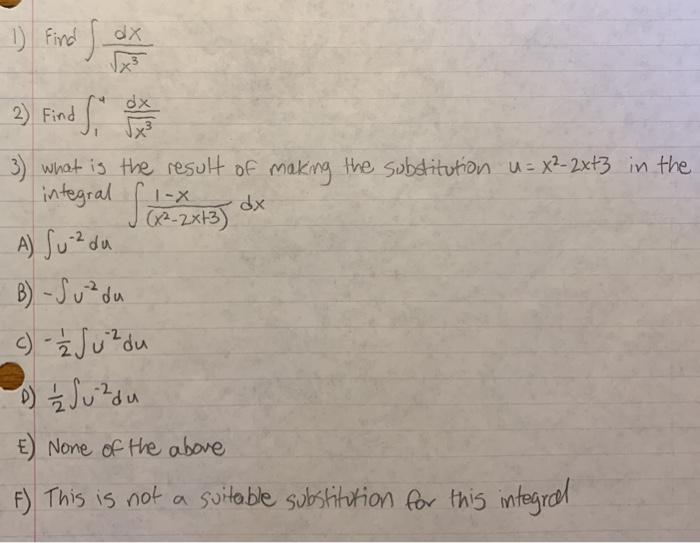 1) Find ∫ dx/√x³
2) Find ∫₁⁴ dx/√x³
3) what is the result of making the substitution u = x²-2x+3 in the
integral ∫ 1-x/(x²-2x+3) dx
A) ∫u⁻² du
B) -∫u⁻² du
C) -½∫u⁻² du
D) ½∫u⁻² du
E) None of the above
F) This is not a suitable substitution for this integral